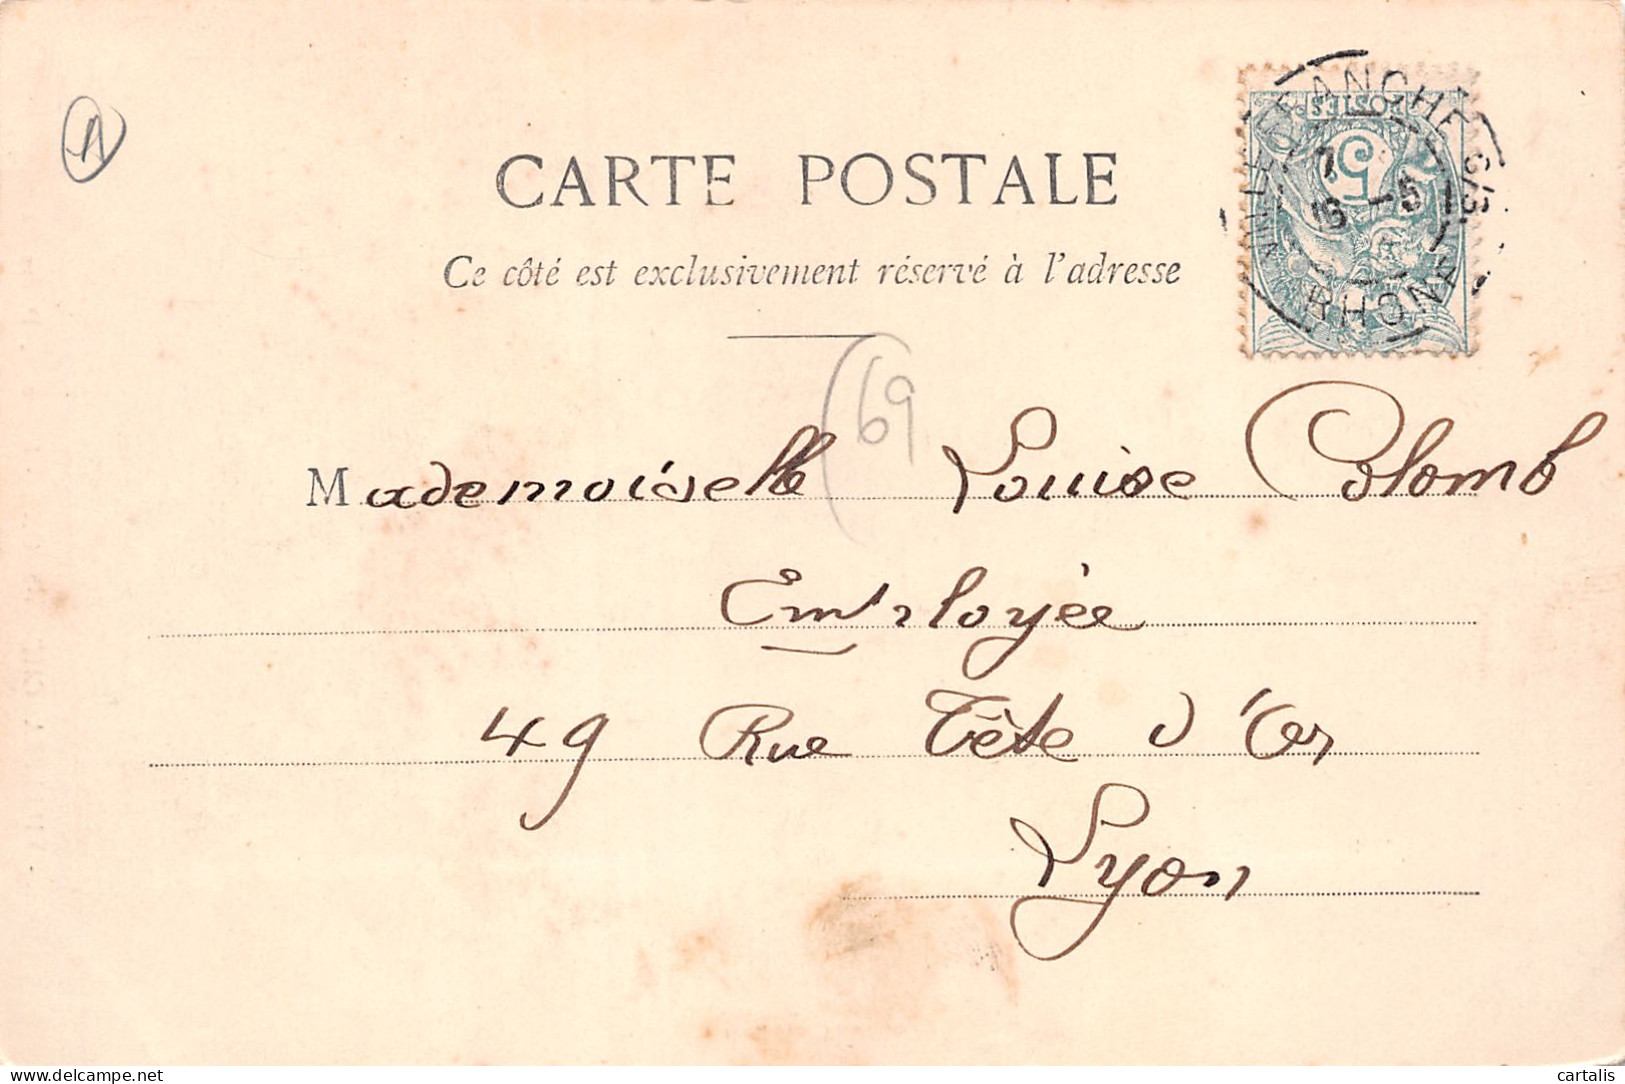 CARTE POSTALE
Ce côté est exclusivement réservé à l'adresse
POSTES
5
VILLEFRANCHE S/S
7
16 -5
RHONE
(69
Mademoiselle Louise Colomb
Employée
49 Rue Tête d'Or
Lyon
www.delcampe.net
cartalis